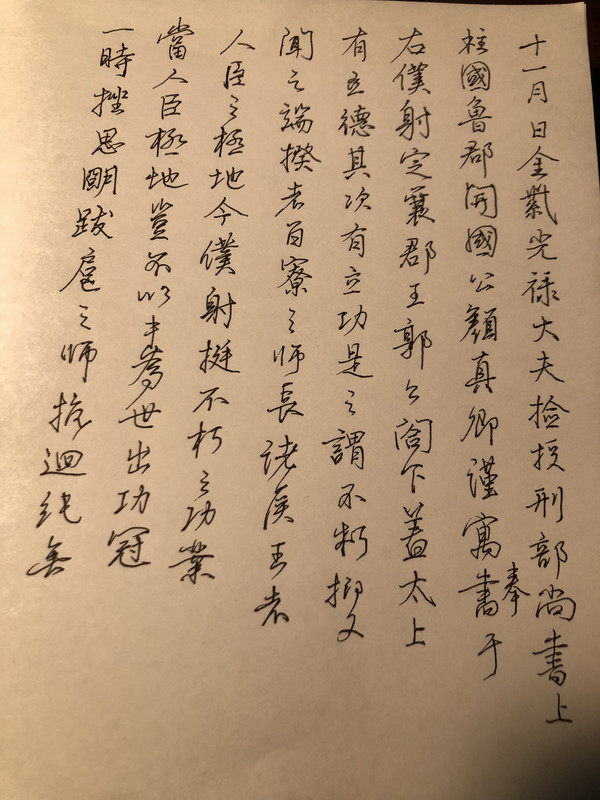 十一月日金紫光禄大夫捡挍刑部尚書上
柱國魯郡開國公顔真卿謹寓書于
奉
右僕射定襄郡王郭公閤下蓋太上
有立德其次有立功是之謂不朽抑又
聞之端揆者百寮之师長诸侯王者
人臣之極地今僕射挺不朽之功業
當人臣極地豈不以才為世出功冠
一時挫思明跋扈之师抗迴纥無